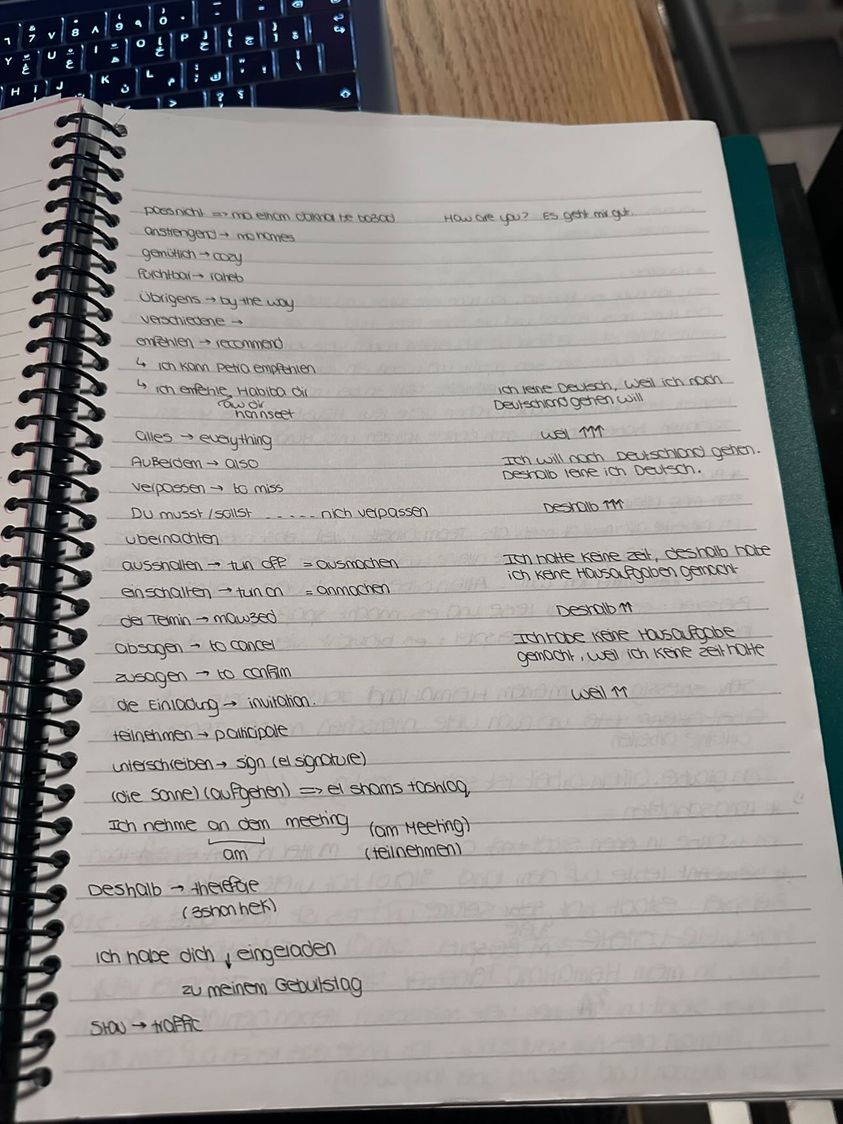 How are you? Es geht mir gut.
anstrengend →
gemütlich → cozy
furchtbar → raheb
Übrigens → by the way
verschiedene →
empfehlen → recommend
↳ ich kann Petra empfehlen
↳ ich empfehle, Habiba dir
aw dir
hannseet
alles → everything
Außerdem → also
verpassen → to miss
Du musst / sollst ...... nich verpassen
übernachten
ausschalten → turn off = ausmachen
einschalten → turn on = anmachen
der Termin → maw3ed
absagen → to cancel
zusagen → to confirm
die Einladung → invitation.
teilnehmen → participate
unterschreiben → sign (el signature)
(die Sonne) (aufgehen) => el shams tashloq
Ich nehme an dem meeting (am Meeting)
am (teilnehmen)
Deshalb → therefore
(3shan hek)
ich habe dich ↓ eingeladen
zu meinem Geburtstag
Stau → traffic
ich lerne Deutsch, weil ich nach
Deutschland gehen will
weil ↑↑↑
Ich will nach Deutschland gehen.
Deshalb lerne ich Deutsch.
Deshalb ↑↑
Ich hatte keine zeit, deshalb habe
ich keine Hausaufgaben gemacht
Deshalb ↑↑
Ich habe keine Hausaufgabe
gemacht, weil ich keine zeit hatte
weil ↑↑